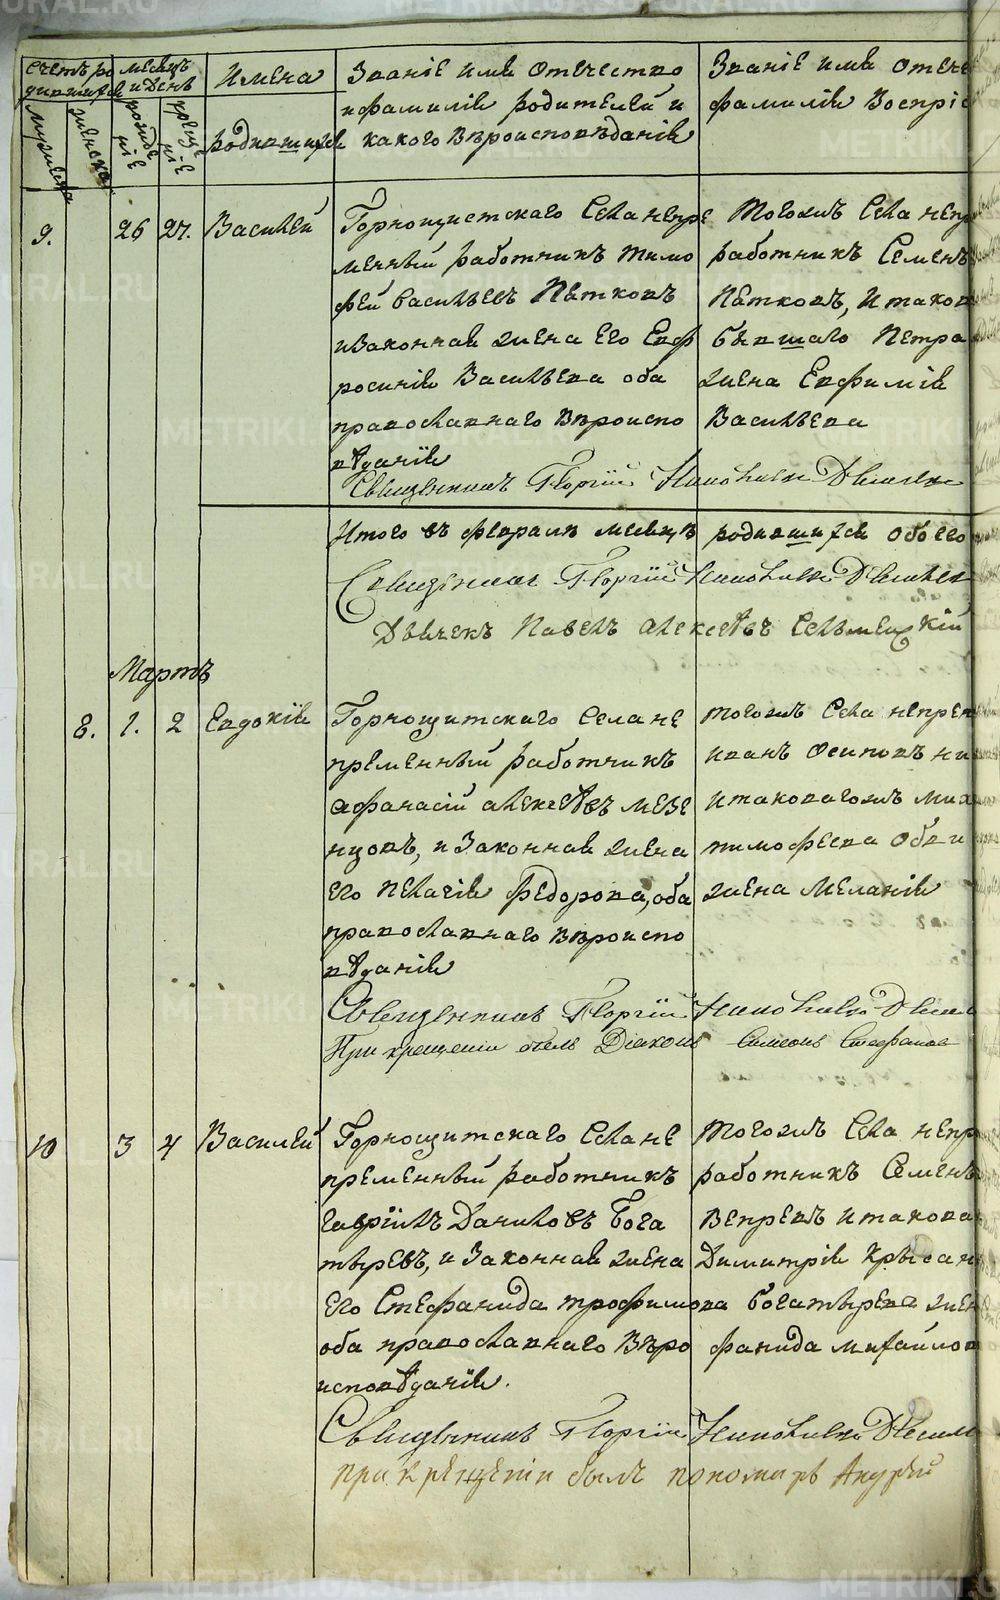 Счетъ ро
дившихся
мужеска
женска
месяцъ
и День
рожде
ніе
креще
ніе
Имена
родившихся
Званіе имя отечество
и фамилія родителей и
какого Вѣроисповѣданія
Званіе имя отече
фамилія Воспріе
9. 26 27. Василей
Горнощитскаго Села непре
менный работникъ тимо
фей васильевъ Пѣтковъ
и законная жена его Евф
росинія Васильева оба
православнаго Вѣроиспо
вѣданія
Тогожъ Села непр
работникъ Семенъ
Пѣтковъ, и таков
бывшаго Петра
жена Евфимія
Васильева
Священникъ Георгій
Итого въ февралѣ месяцѣ родившихся обоего
Священникъ Георгій
Дьячекъ Павелъ алексѣевъ
Мартъ
8. 1. 2 Евдокія
Горнощитскаго Села не
пременный работникъ
афанасій алексѣевъ мезе
нцовъ, и законная жена
его пелагія федорова, оба
православнаго Вѣроиспо
вѣданія
тогожъ Села непрем
иванъ осиповъ
и таковагожъ
тимофеева
жена меланія
Священникъ Георгій
При крещеніи былъ Діаконъ Симеонъ Стефановъ
10 3 4 Василей
Горнощитскаго Села не
пременный работникъ
гаврійлъ Даниловъ Бога
тыревъ, и законная жена
его Стефанида трофимова
оба православнаго Вѣро
исповѣданія.
Тогожъ Села непр
работникъ Семенъ
Вепревъ и такова
Димитрія
богатырева жен
фанида михайлов
Священникъ Георгій
при крещеніи былъ пономарь Андрей